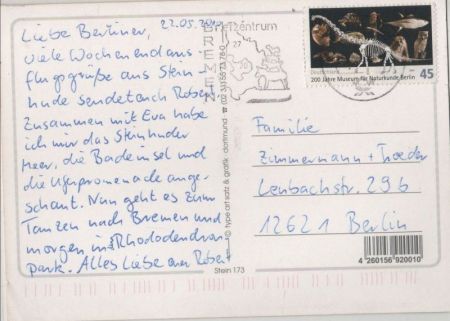 Liebe Berliner, 22.05.2010
viele Wochenendaus-
flugsgrüße aus Stein-
hude sendet euch Robert.
Zusammen mit Eva habe
ich mir das Steinhuder
Meer, die Badeinsel und
die Uferpromenade ange-
schaut. Nun geht es zum
Tanzen nach Bremen und
morgen in Rhododendron-
park. Alles Liebe euer Robert
© type art satz & grafik · dortmund
Stein 173
Briefzentrum
BREMEN
27
Deutschland
200 Jahre Museum für Naturkunde Berlin
45
Familie
Zimmermann + Troeder
Lenbachstr. 29b
12621 Berlin
4 260156 920010